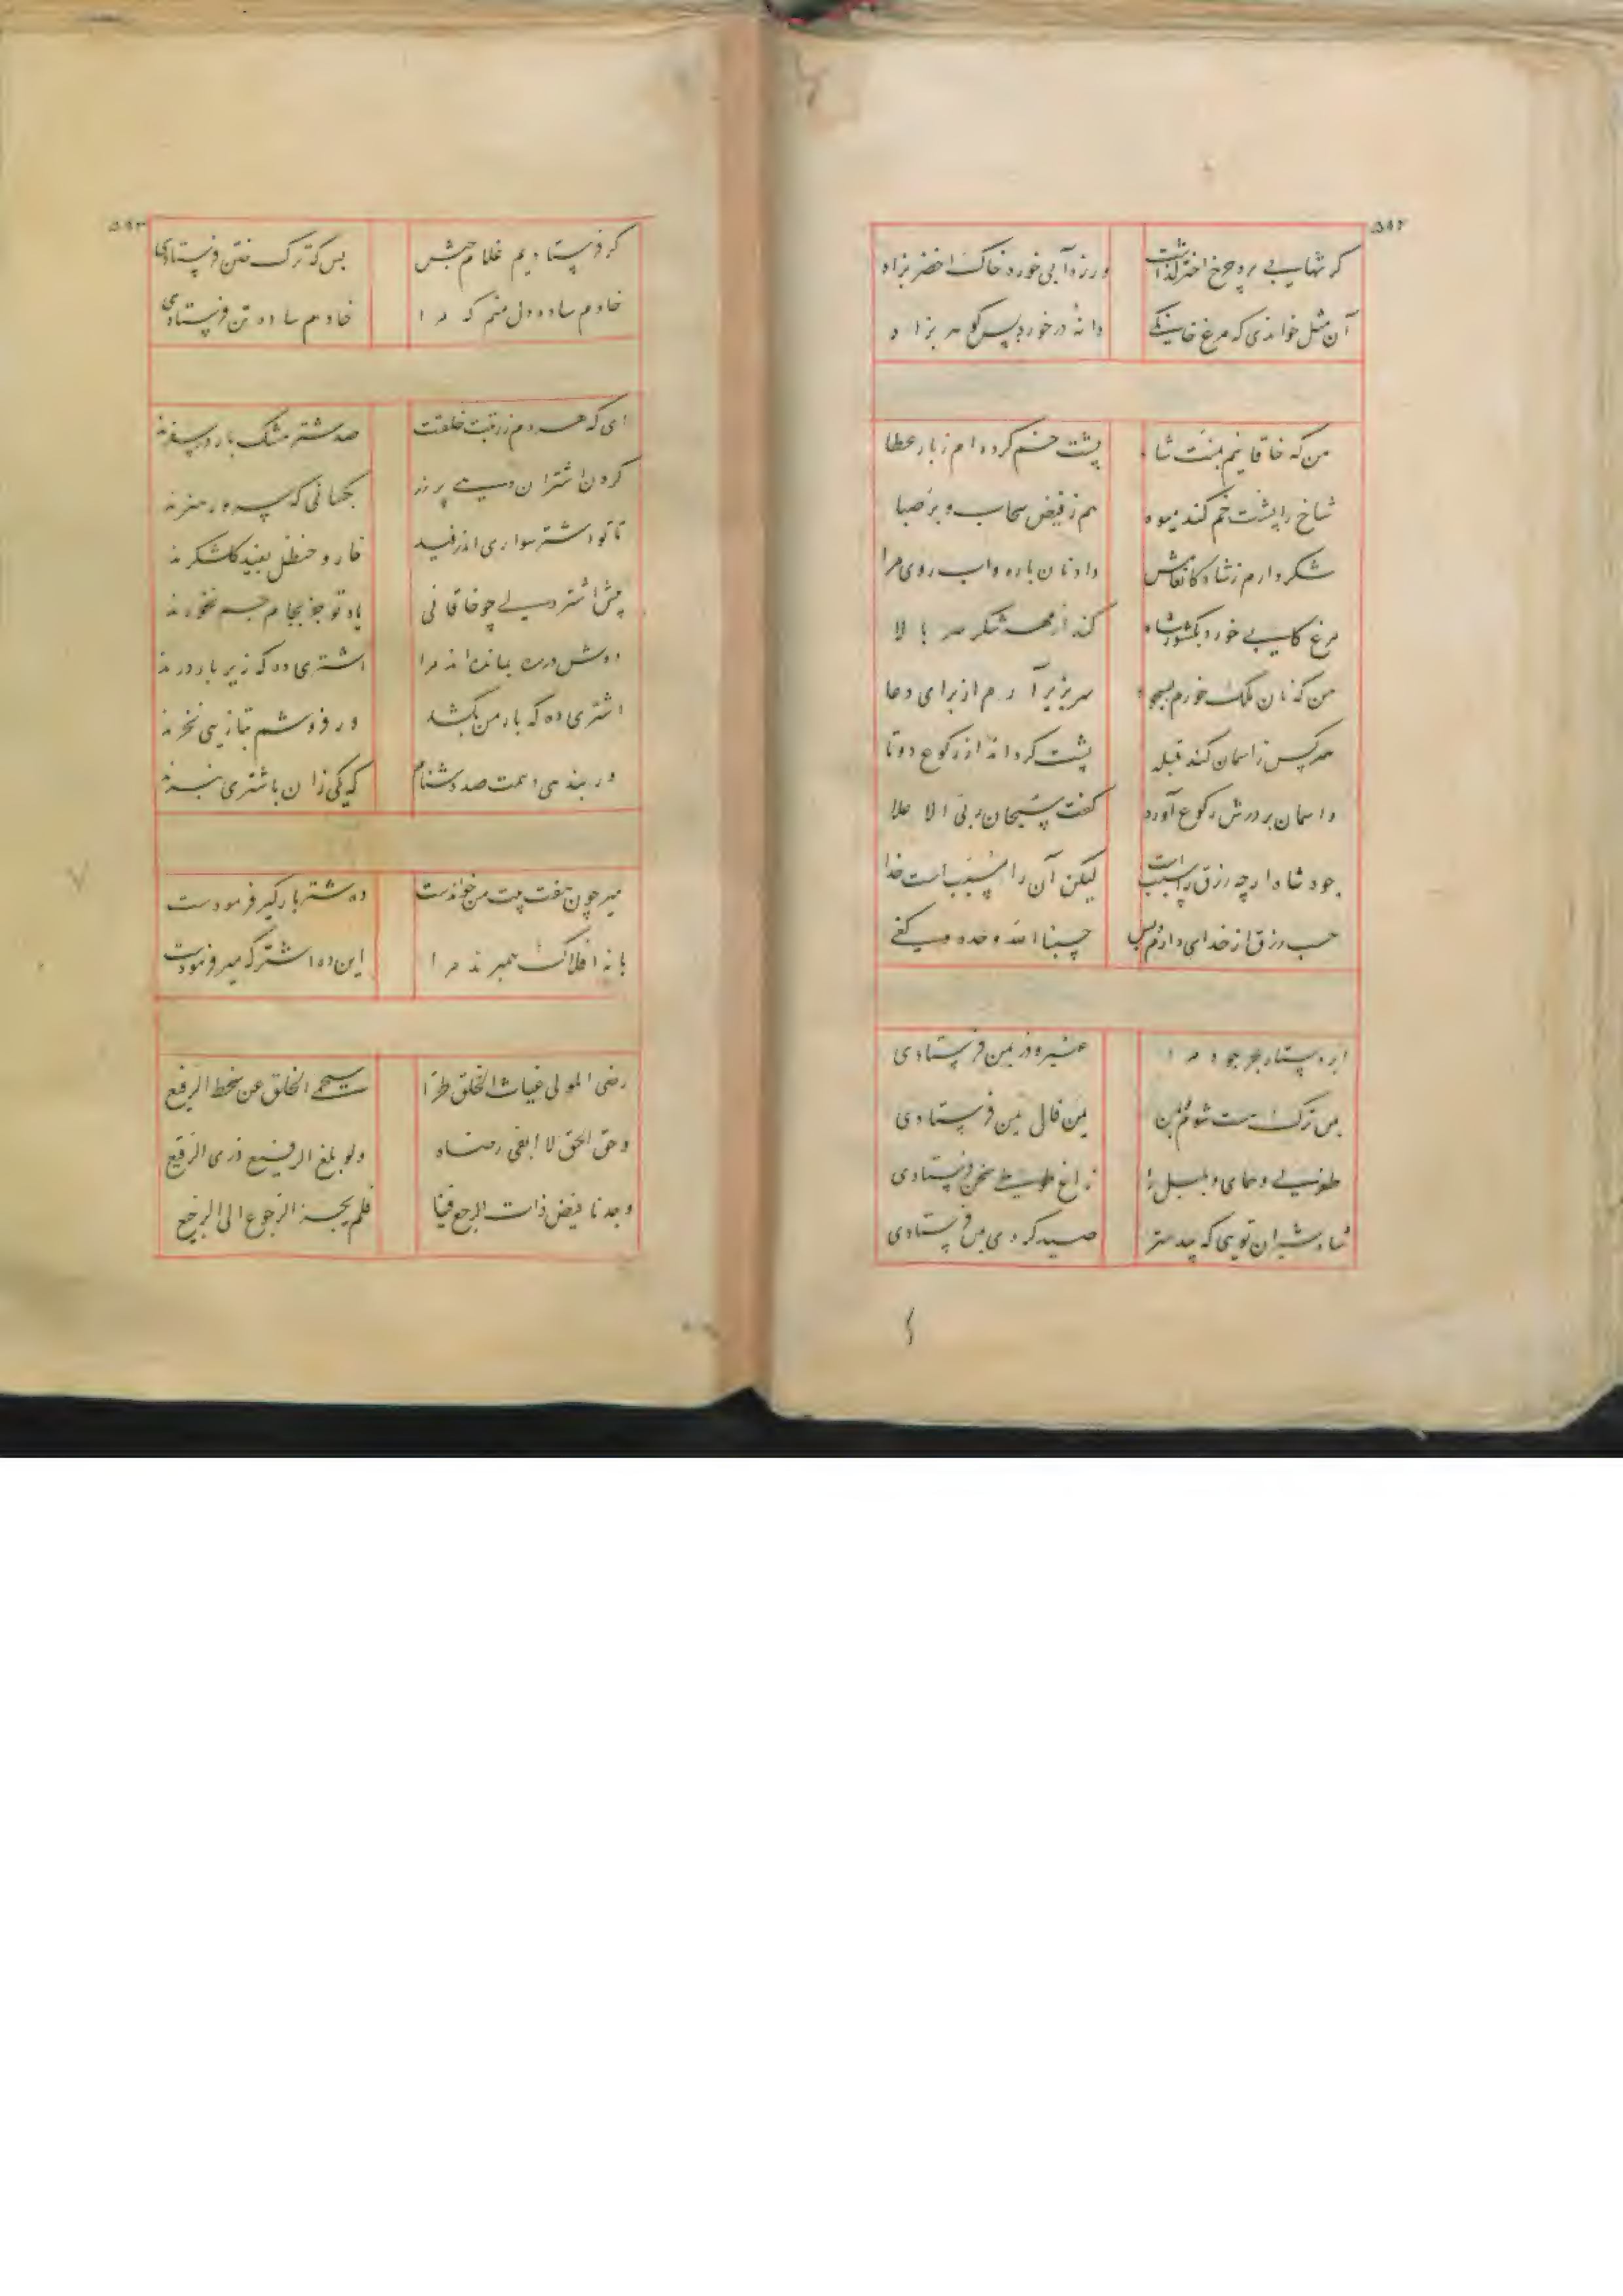 ۵۹۲
گر شهابی برد چرخ اختر گذاشت
ور زه آبی خورد خاک اخضر بزاد
آن مثل خواندی که مرغ خانگی
دانهٔ در خورد پس گوهر بزاد
من که خاقانیم بمنت شاه
پشت خم کرده‌ام ز بار عطا
شاخ را پشت خم کند میوه
هم ز فیض سحاب و بر صبا
شکر دارم ز شاه کانعامش
داد نان پاره و آب روی مرا
مرغ کابی خورد بکشور شاه
کند از بهر شکر سر بالا
من که نان ملک خورم بسجود
سر بزیر آرم از برای دعا
هر کس ز آسمان کند قبله
پشت گرداند از رکوع دوتا
و آسمان بر درش رکوع آورد
گفت سبحان ربی الاعلا
جود شاه ارچه رزق را سبب است
لیکن آن را مسبب است خدا
سبب رزق از خدای دارم و بس
حسبنا الله وحده وکفی
ابر دستار بحر جود مرا
عنبر و در یمن فرستادی
من ترک است شوم من
یمن فال یمن فرستادی
طوطی و همای و بلبل را
زاغ طوطی سخن فرستادی
شاه شیران تویی که
صید کردی فرستادی
۵۹۳
گر فرستادیم غلام حبش
بس که ترک ختن فرستادی
خادم ساده دل منم که مرا
خادم ساده تن فرستادی
ای که هر دم ز رتبت خلقت
صد شتر مشک بار در سفرند
گردن اشتران پر زر
بکسانی که سرور هنرند
تا تو اشتر سواری اندر فید
خار و حنظل بفید گلشکرند
پیش اشتر دلی چو خاقانی
یاد تو جز بجام جم نخورند
دوش مانده‌اند مرا
اشتری ده که زیر بار درند
اشتری ده که بار من بکشد
ور فروشم بتازیی نخرند
ور بندهی دهمت صد دشنام
که یکی زان باشتری نبرند
میر چون هفت بیت من خواندست
ده شتر بارگیر فرمودست
با نه افلاک همبرند مرا
این ده اشتر که میر فرمودست
رضی المولی غیاث الخلق طرا
الخلق عن سخط الرفیع
وحق الحق لا ابغی رضاه
ولو بلغ الرفیع ذری الرقیع
وجدنا فیض ذات الرجع فینا
فلم یجز الرجوع الی الرجیع